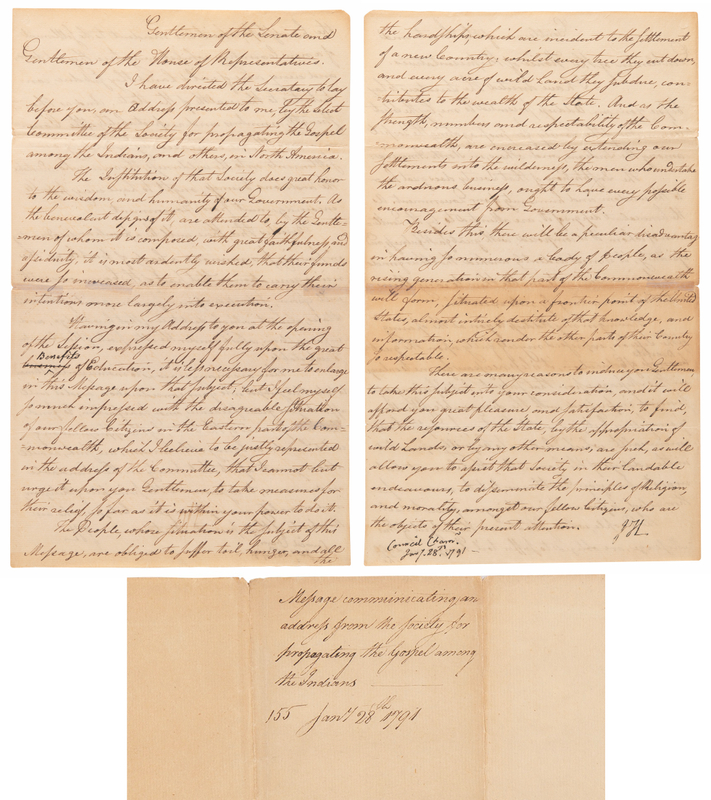 Gentlemen of the Senate and
Gentlemen of the House of Representatives.
I have directed the Secretary to lay
before you, an Address presented to me, by the Select
Committee of the Society for propagating the Gospel
among the Indians, and others, in North America.
The Institution of that Society does great honor
to the wisdom, and humanity of our Government. As
the benevolent designs of it, are attended to, by the Gentle-
=men of whom it is composed, with great faithfulness and
assiduity; it is most ardently wished, that their funds
were so increased, as to enable them to carry their
intentions more largely into execution.
Having in my Address to you at the opening
of the Session, expressed myself fully upon the great
Benefits
of Education, it is less necessary for me to enlarge
in this Message upon that subject; but I feel myself
so much impressed with the disagreable situation
of our fellow Citizens in the Eastern parts of the Com=
=monwealth, which I believe to be justly represented
in the address of the Committee, that I cannot but
urge it upon you Gentlemen, to take measures for
their relief, so far as it is within your power to do it.
The People, whose situation is the subject of this
Message, are obliged to suffer toil, hunger, and all
the
the hardships, which are incident to the settlement
of a new Country; whilst every tree they cut down,
and every acre of wild Land they subdue, con-
tributes to the wealth of the State. And as the
strength, numbers and respectability of the Com-
monwealth, are increased by extending our
settlements into the wilderness, the men who undertake
the arduous business, ought to have every possible
encouragement from Government.
Besides this, there will be a peculiar disadvantage
in having so numerous a body of people, as the
rising generation in that part of the Commonwealth
will form, situated upon a frontier point of the United
States, almost intirely destitute of that knowledge, and
information, which render the other parts of their Country
so respectable.
There are many reasons to induce you Gentlemen
to take this subject into your consideration, and it will
afford you great pleasure and satisfaction, to find,
that the resources of the State, by the appropriation of
wild Lands, or by any other means, are such, as will
allow you to assist that Society, in their laudable
endeavours, to disseminate the principles of Religion
and morality, amongst our fellow Citizens, who are
the objects of their present attention.
JH
Council Chamr.
Jany. 28th. 1791
Message communicating an
address from the Society for
propagating the Gospel among
the Indians
155 Jany 28th 1791